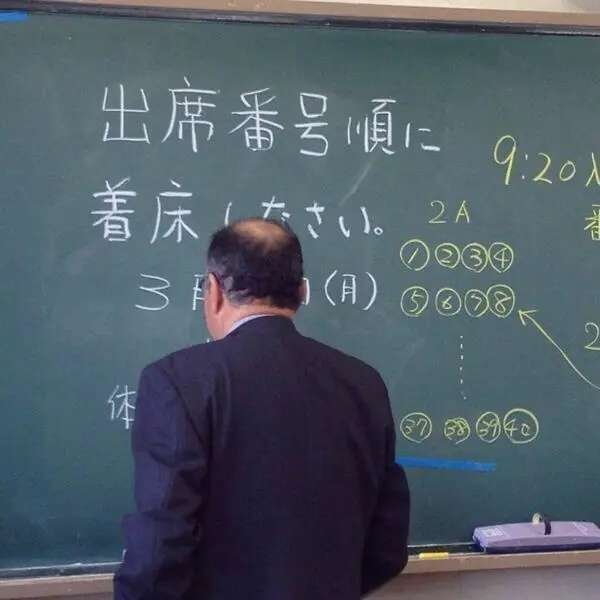 出席番号順に
着床しなさい。
3月 (月)
体
9:20
番
2A
① ② ③ ④
⑤ ⑥ ⑦ ⑧
㊲ ㊳ ㊴ ㊵
2